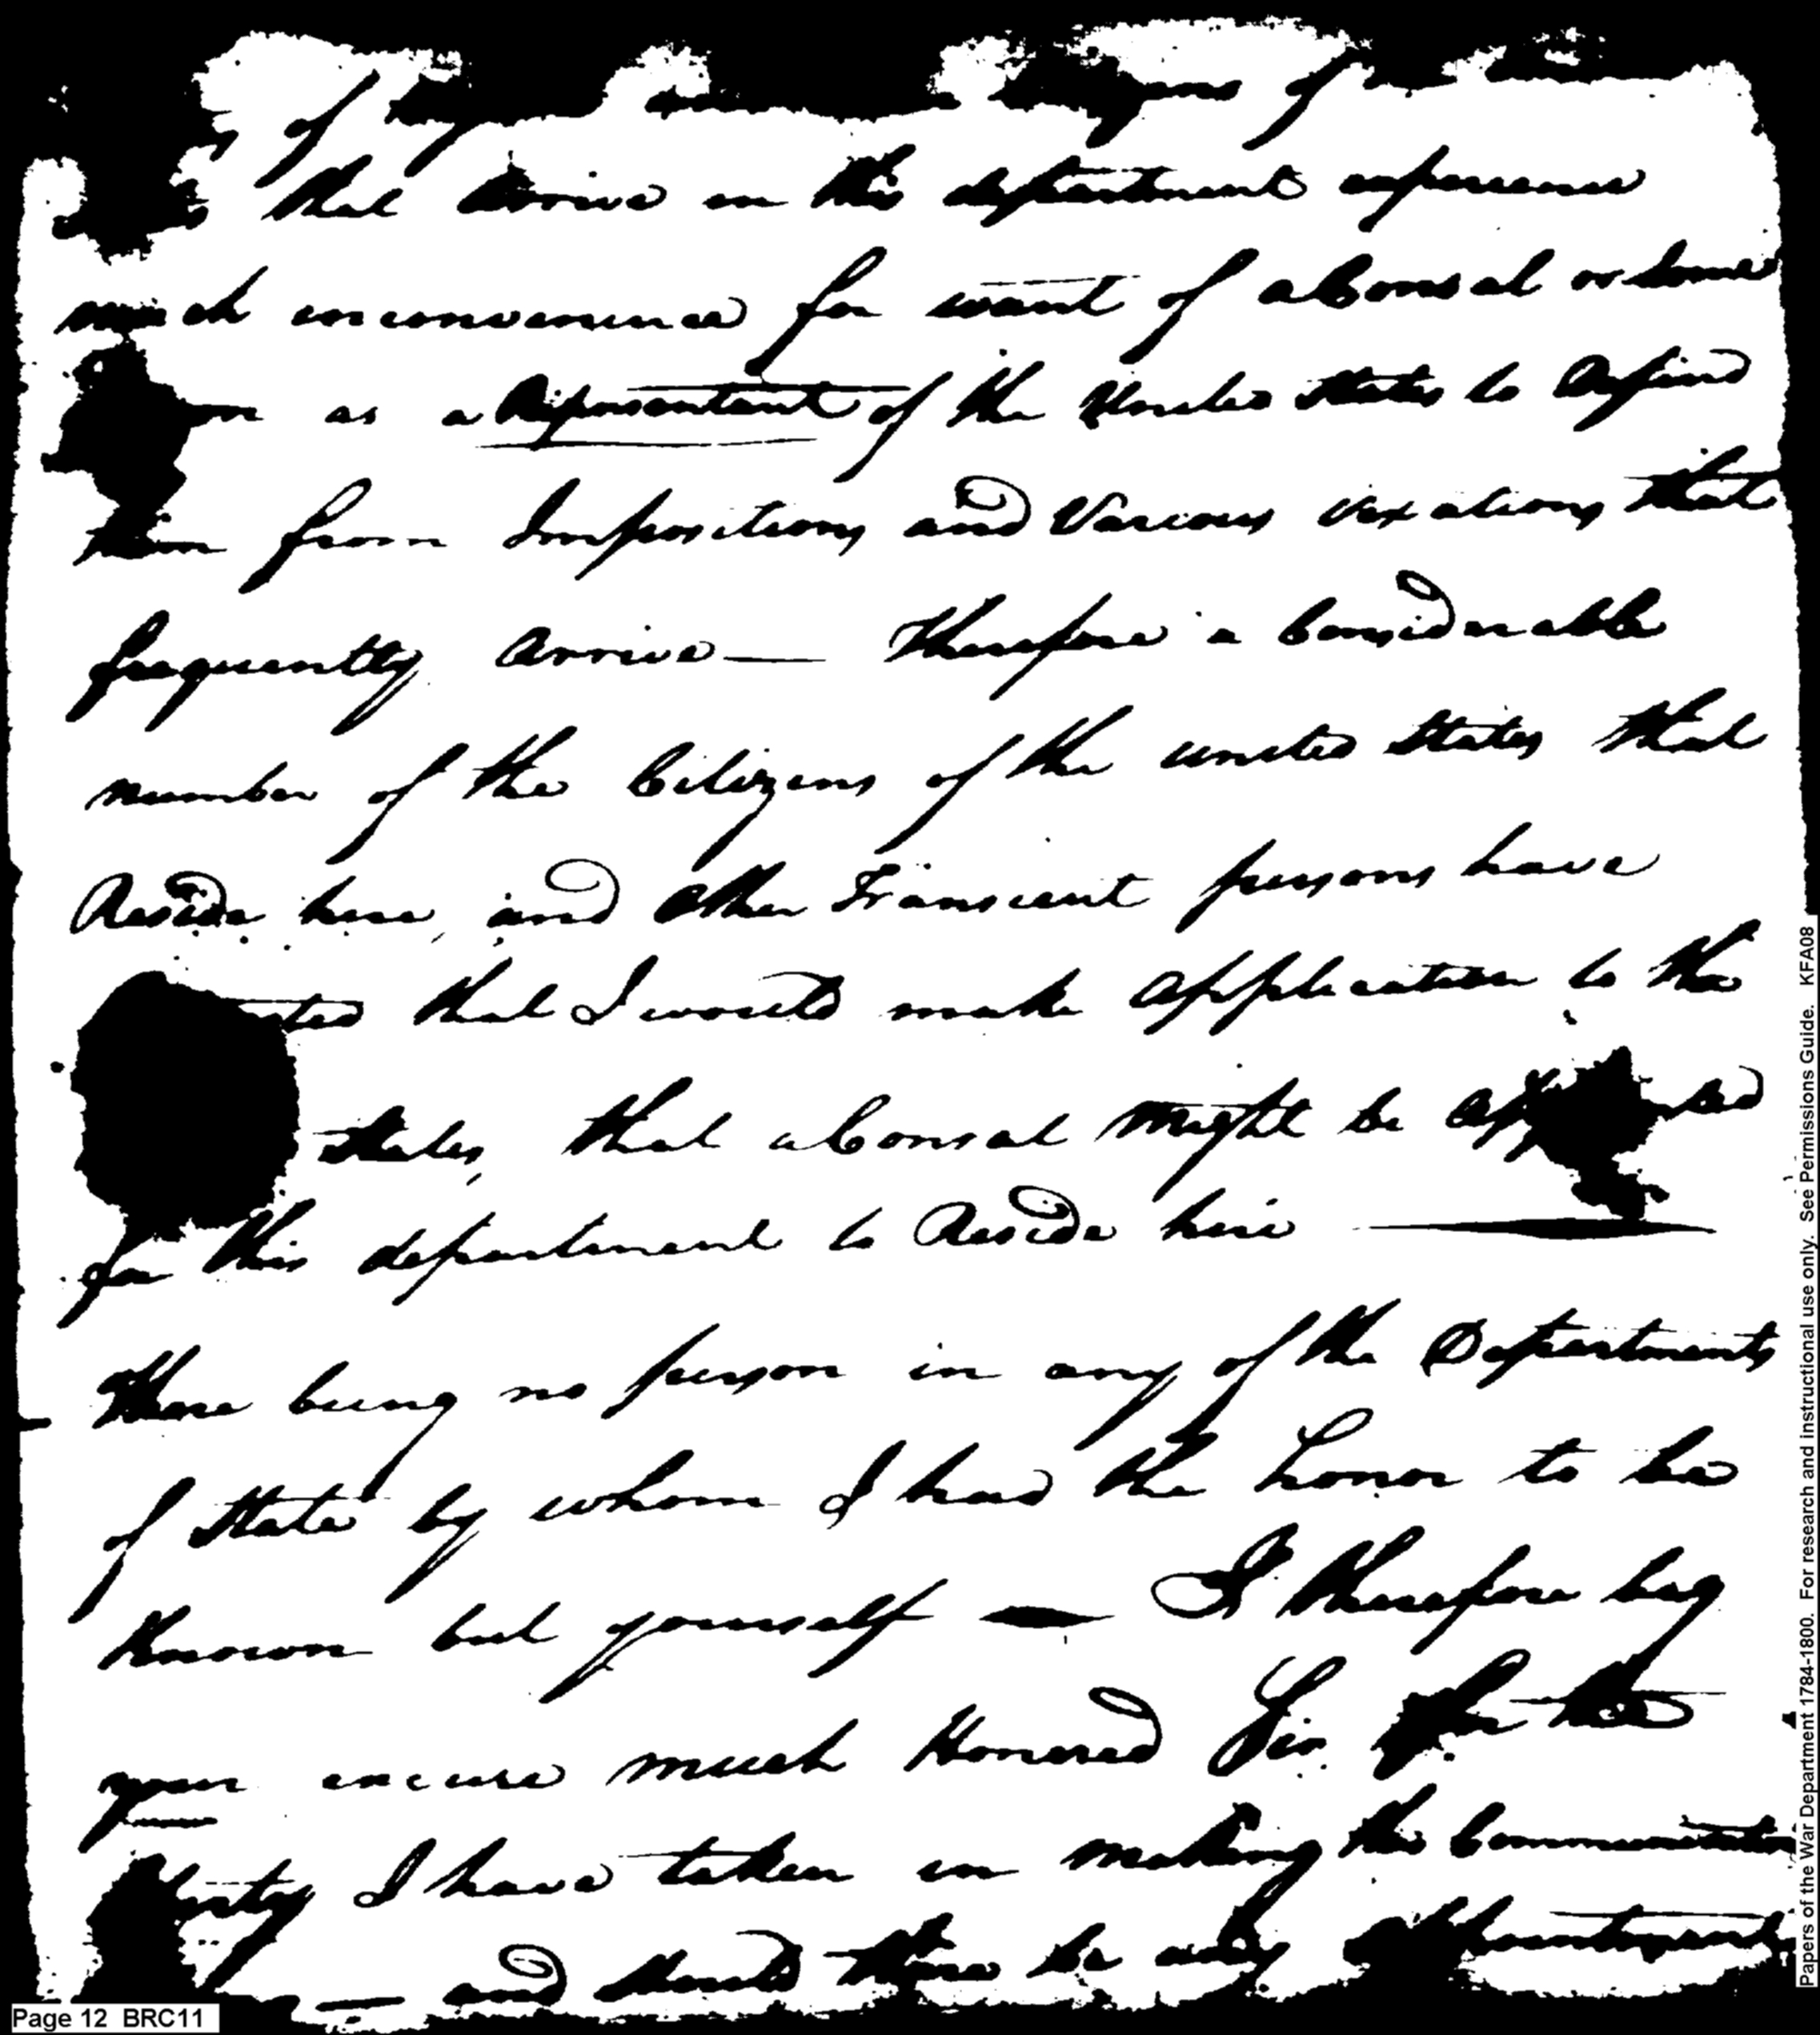 of
that Arrive in this department experience
much inconvenience for want of a Consol or some
as a Representant of the United States to defend
them from Impositions and Various vexations that
frequently Arrive — Therefore a Considerable
number of the Citizens of the united States that
Reside here, and Other Transcient persons have
that I would make application to the
States, that a Consol might be
for this department to Reside here
there being no person in any of the Departments
of State by whom I had the honor to be
known but yourself — I therefore beg
your excuse much Honored Sir for the
liberty I have taken in making this Communication
— and should there be any
Page 12 BRC11
Papers of the War Department 1784-1800. For research and instructional use only. See Permissions Guide. KFA08